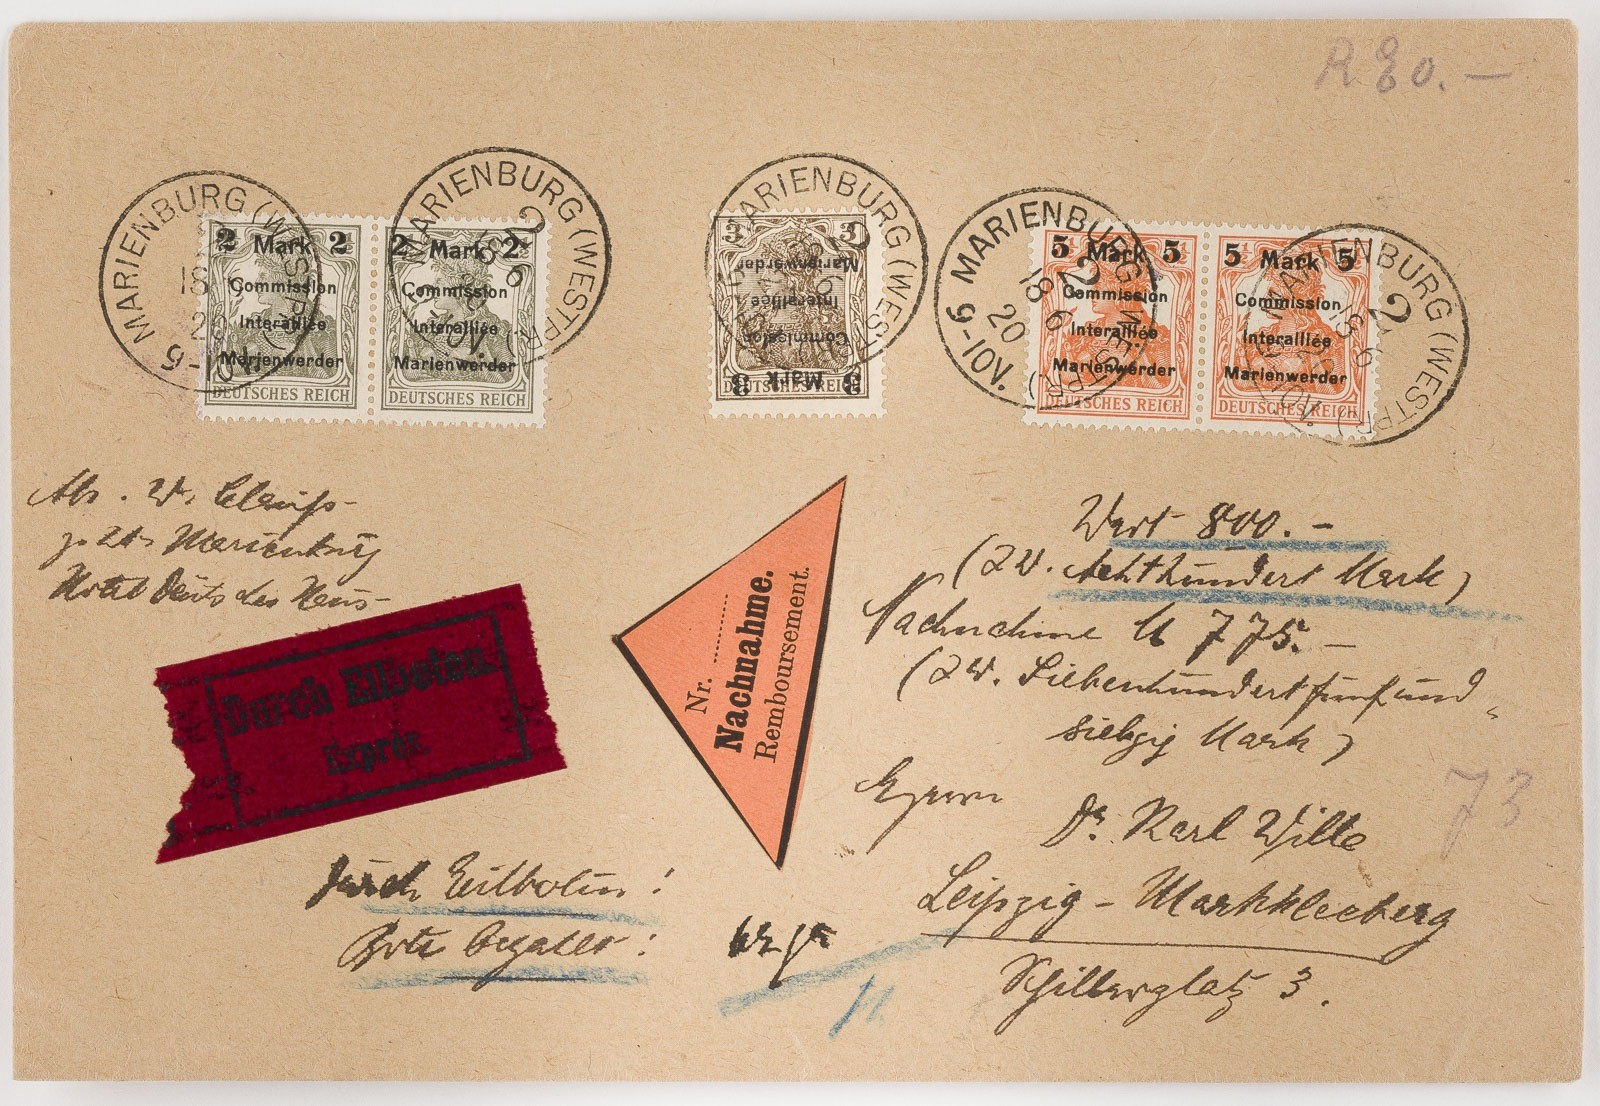 R 80.—
MARIENBURG (WESTPR)
18 6
20
6-10V.
MARIENBURG (WESTPR)
2
18 6
10V.
MARIENBURG (WES
2
MARIENBURG (WESTPR)
2
18 6
20
6-10V.
MARIENBURG (WESTPR)
2
18 6
10V.
2 Mark 2
Commission
Interalliée
Marienwerder
DEUTSCHES REICH
2 Mark 2
Commission
Interalliée
Marienwerder
DEUTSCHES REICH
3 3
3 Mark 3
Commission
Interalliée
Marienwerder
DEUTSCHES REICH
5 Mark 5
Commission
Interalliée
Marienwerder
DEUTSCHES REICH
5 Mark 5
Commission
Interalliée
Marienwerder
DEUTSCHES REICH
Abs. W.
z. Zt. Marienburg
Hotel Deutsches Haus
Durch Eilboten.
Exprès.
Nr. ........
Nachnahme.
Remboursement.
Wert 800.—
(zw. Achthundert Mark)
Nachnahme M 775.—
(zw. Siebenhundertfünfund
siebzig Mark)
Herrn
Dr. Karl Wille
Leipzig - Markkleeberg
Schillerplatz 3.
73
Durch Eilboten!
Bote bezahlt!